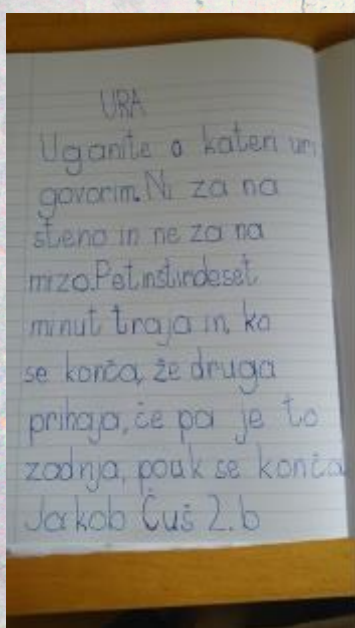 URA
Uganite o kateri uri
govorim. Ni za na
steno in ne za na
mizo. Petinštirideset
minut traja in, ko
se konča, že druga
prihaja, če pa je to
zadnja, pouk se konča.
Jakob Čuš 2.b